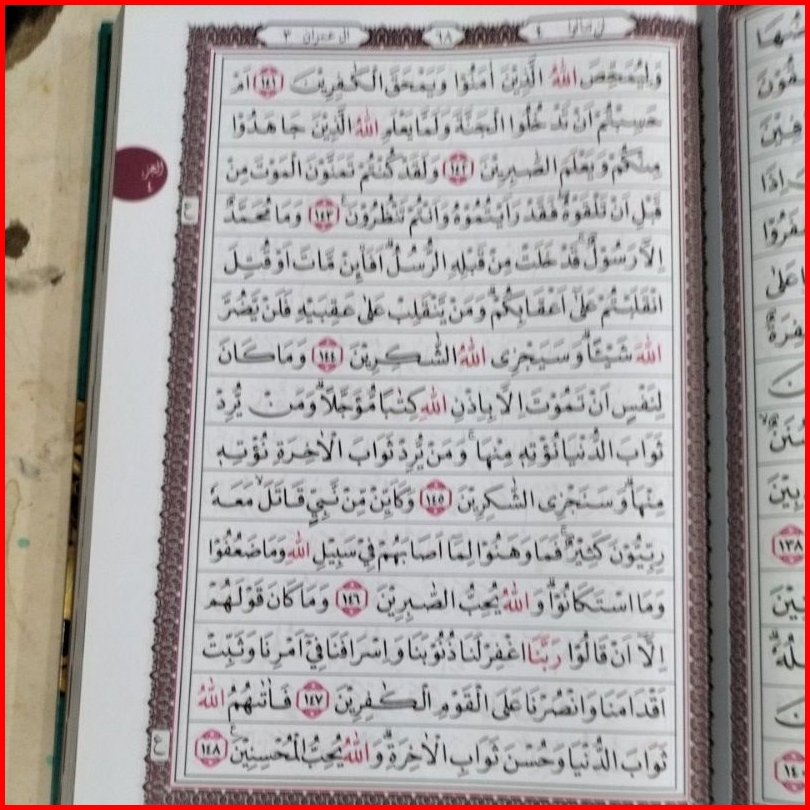 لن تنالوا ٤
٦٨
اٰل عمرٰن ٣
وَلِيُمَحِّصَ اللّٰهُ الَّذِيْنَ اٰمَنُوْا وَيَمْحَقَ الْكٰفِرِيْنَ ﴿١٤١﴾ اَمْ
حَسِبْتُمْ اَنْ تَدْخُلُوا الْجَنَّةَ وَلَمَّا يَعْلَمِ اللّٰهُ الَّذِيْنَ جَاهَدُوْا
مِنْكُمْ وَيَعْلَمَ الصّٰبِرِيْنَ ﴿١٤٢﴾ وَلَقَدْ كُنْتُمْ تَمَنَّوْنَ الْمَوْتَ مِنْ
قَبْلِ اَنْ تَلْقَوْهُ ۖ فَقَدْ رَاَيْتُمُوْهُ وَاَنْتُمْ تَنْظُرُوْنَ ﴿١٤٣﴾ وَمَا مُحَمَّدٌ
اِلَّا رَسُوْلٌ ۚ قَدْ خَلَتْ مِنْ قَبْلِهِ الرُّسُلُ ۗ اَفَا۟ىِٕنْ مَّاتَ اَوْ قُتِلَ
انْقَلَبْتُمْ عَلٰٓى اَعْقَابِكُمْ ۗ وَمَنْ يَّنْقَلِبْ عَلٰى عَقِبَيْهِ فَلَنْ يَّضُرَّ
اللّٰهَ شَيْـًٔا ۗ وَسَيَجْزِى اللّٰهُ الشّٰكِرِيْنَ ﴿١٤٤﴾ وَمَا كَانَ
لِنَفْسٍ اَنْ تَمُوْتَ اِلَّا بِاِذْنِ اللّٰهِ كِتٰبًا مُّؤَجَّلًا ۗ وَمَنْ يُّرِدْ
ثَوَابَ الدُّنْيَا نُؤْتِهٖ مِنْهَا ۚ وَمَنْ يُّرِدْ ثَوَابَ الْاٰخِرَةِ نُؤْتِهٖ
مِنْهَا ۗ وَسَنَجْزِى الشّٰكِرِيْنَ ﴿١٤٥﴾ وَكَاَيِّنْ مِّنْ نَّبِيٍّ قَاتَلَ ۙ مَعَهٗ
رِبِّيُّوْنَ كَثِيْرٌ ۚ فَمَا وَهَنُوْا لِمَآ اَصَابَهُمْ فِيْ سَبِيْلِ اللّٰهِ وَمَا ضَعُفُوْا
وَمَا اسْتَكَانُوْا ۗ وَاللّٰهُ يُحِبُّ الصّٰبِرِيْنَ ﴿١٤٦﴾ وَمَا كَانَ قَوْلَهُمْ
اِلَّآ اَنْ قَالُوْا رَبَّنَا اغْفِرْ لَنَا ذُنُوْبَنَا وَاِسْرَافَنَا فِيْٓ اَمْرِنَا وَثَبِّتْ
اَقْدَامَنَا وَانْصُرْنَا عَلَى الْقَوْمِ الْكٰفِرِيْنَ ﴿١٤٧﴾ فَاٰتٰىهُمُ اللّٰهُ
ثَوَابَ الدُّنْيَا وَحُسْنَ ثَوَابِ الْاٰخِرَةِ ۗ وَاللّٰهُ يُحِبُّ الْمُحْسِنِيْنَ ۚ ﴿١٤٨﴾
الجزء
٤
ع
ع